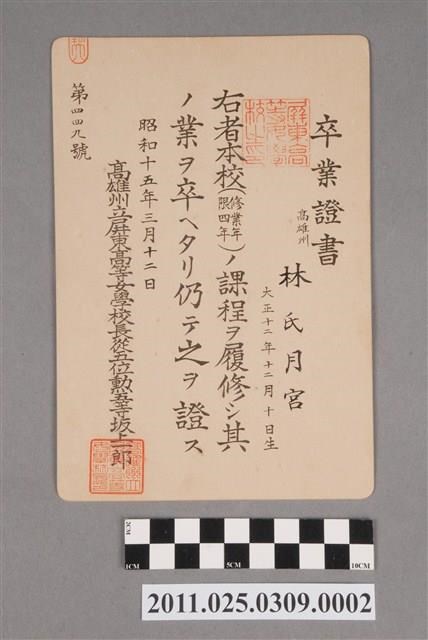 卒業證書
高雄州
林氏月宮
大正十二年十二月十日生
右者本校(修業年限四年)ノ課程ヲ履修シ其
ノ業ヲ卒ヘタリ仍テ之ヲ證ス
昭和十五年三月十二日
高雄州立屏東高等女學校長從五位勲五等坂上一郎
第四四九號
屏東高
等女學
校之印
2CM
1CM
5CM
10CM
2011.025.0309.0002